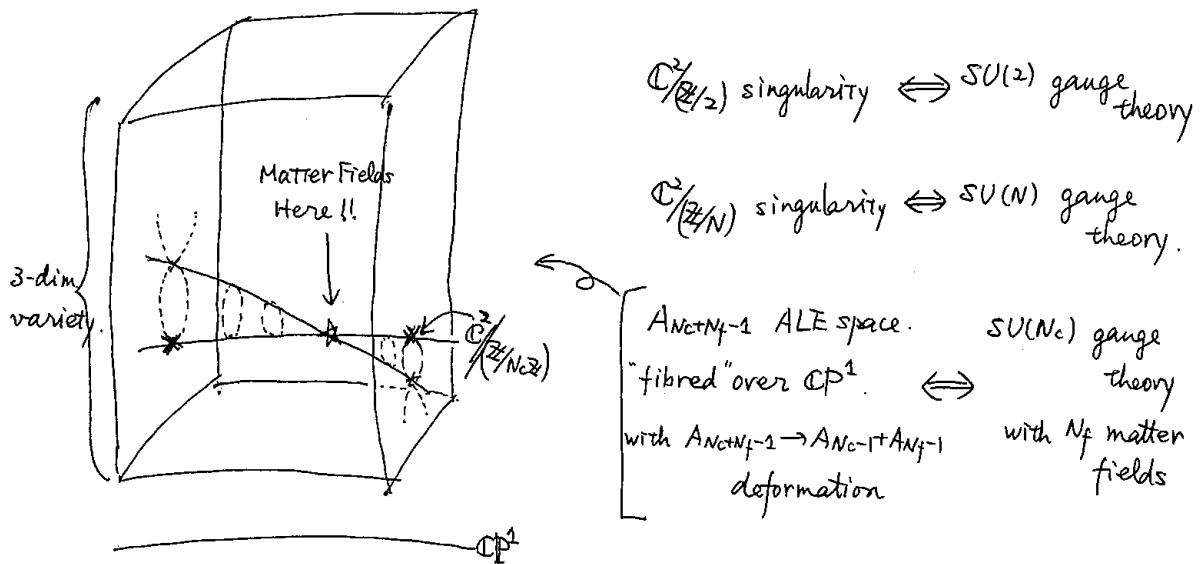 Matter Fields
Here!!
3-dim
variety.
ℂ²/(ℤ/NcℤZ)
ℂP¹
ℂ²/(ℤ/2) singularity ⟺ SU(2) gauge
theory
ℂ²/(ℤ/N) singularity ⟺ SU(N) gauge
theory.
A_{Nc+Nf-1} ALE space.
"fibred" over ℂP¹.
with A_{Nc+Nf-1} → A_{Nc-1} + A_{Nf-1}
deformation
⟺
SU(Nc) gauge
theory
with Nf matter
fields